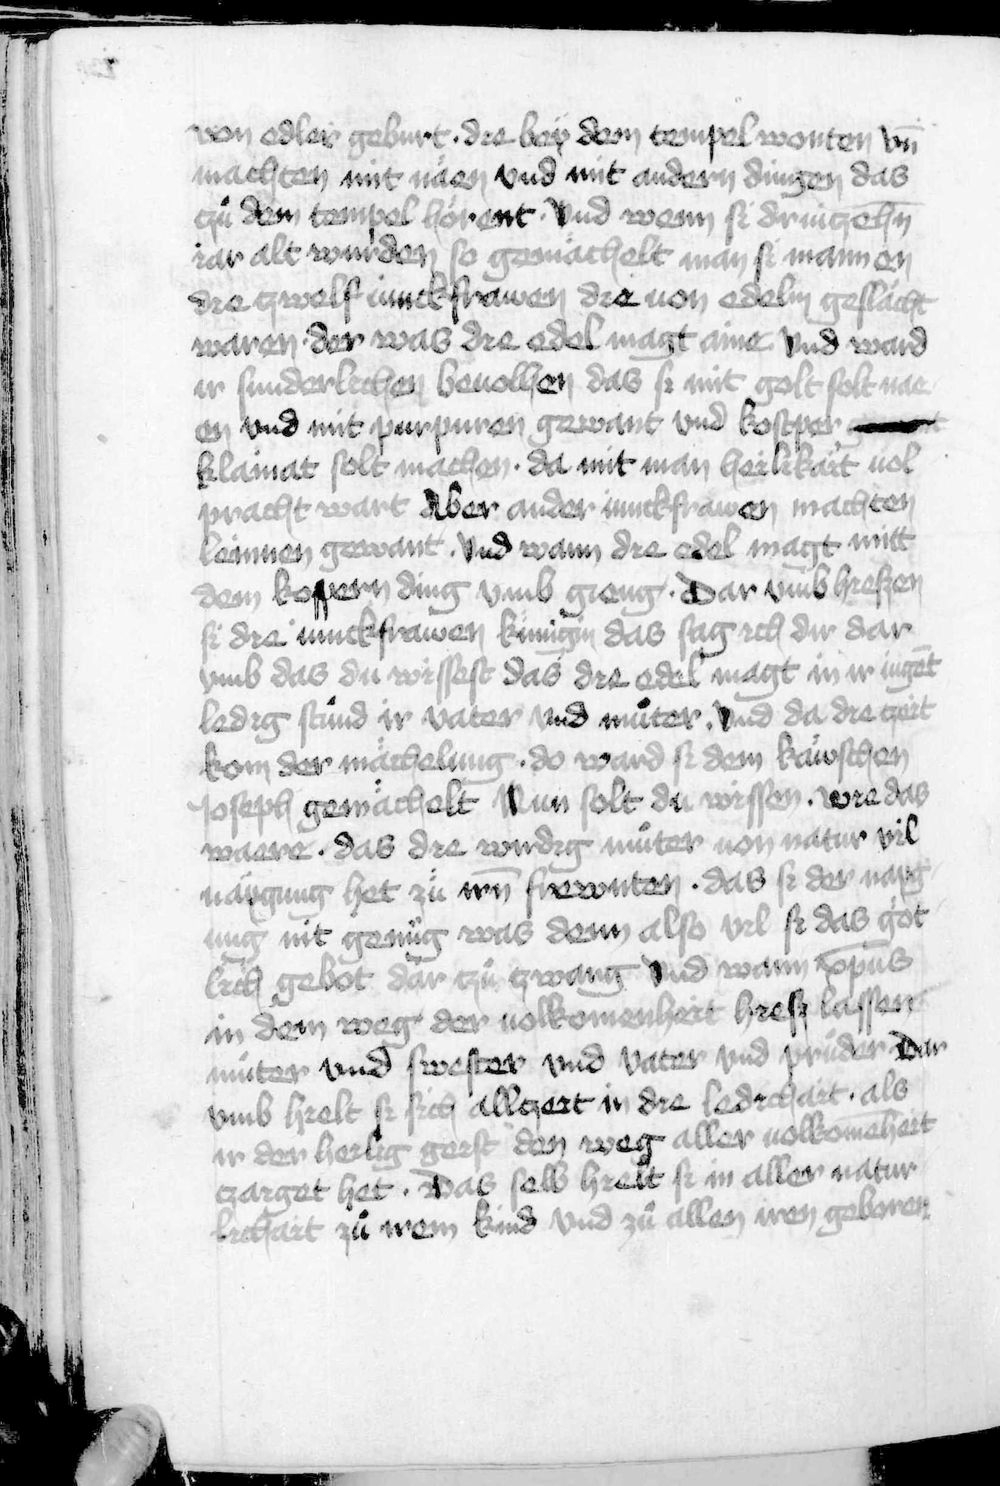 von edler geburt · die beÿ dem tempel wonten vn̄
machten mit näen vnd mit andern dingen das
tzů dem tempel hörent · Vnd wenn si driuczehn̄
iar alt wurden so gemächelt man si mannen
die czwelf iunckfrawen die uon edelm geslächt
waren · der was die edel magt aine Vnd ward
ir sunderlichen beuolhen das si mit golt solt nae
en vnd mit purpuren gewant vnd kostper
klainat solt machen · da mit man heilikait uol
pracht wart Aber ander iunckfrawen machten
leinnen gewant · Vnd wann die edel magt mitt
dem kospern ding vmb gieng · Dar vmb hieszen
si die iunckfrawen künigin das sag ich dir dar
vmb das du wissest das die edel magt in ir iuge̅t
ledig stůnd ir vater vnd můter · Vnd da die czeit
kom der mächelung · do ward si dem käwschen
Joseph gemächelt Nun solt du wissen · wie das
waere · das die wirdig můter uon natur vil
naÿgung het zů irn̄ frewnten · das si der naÿg
ung nit genůg was denn also vil si das göt
lich gebot dar tzů tzwang Vnd wann xp̄us
in dem weg der uolkomenheit hiesz lassen
můter vnd swester vnd vater vnd průder Dar
vmb hielt si sich allczeit in die ledichait · als
ir der heilig geist den weg aller uolkome̅heit
czaiget het · Das selb hielt si in aller natur
lichait zů irem kind vnd zů allen iren geboren